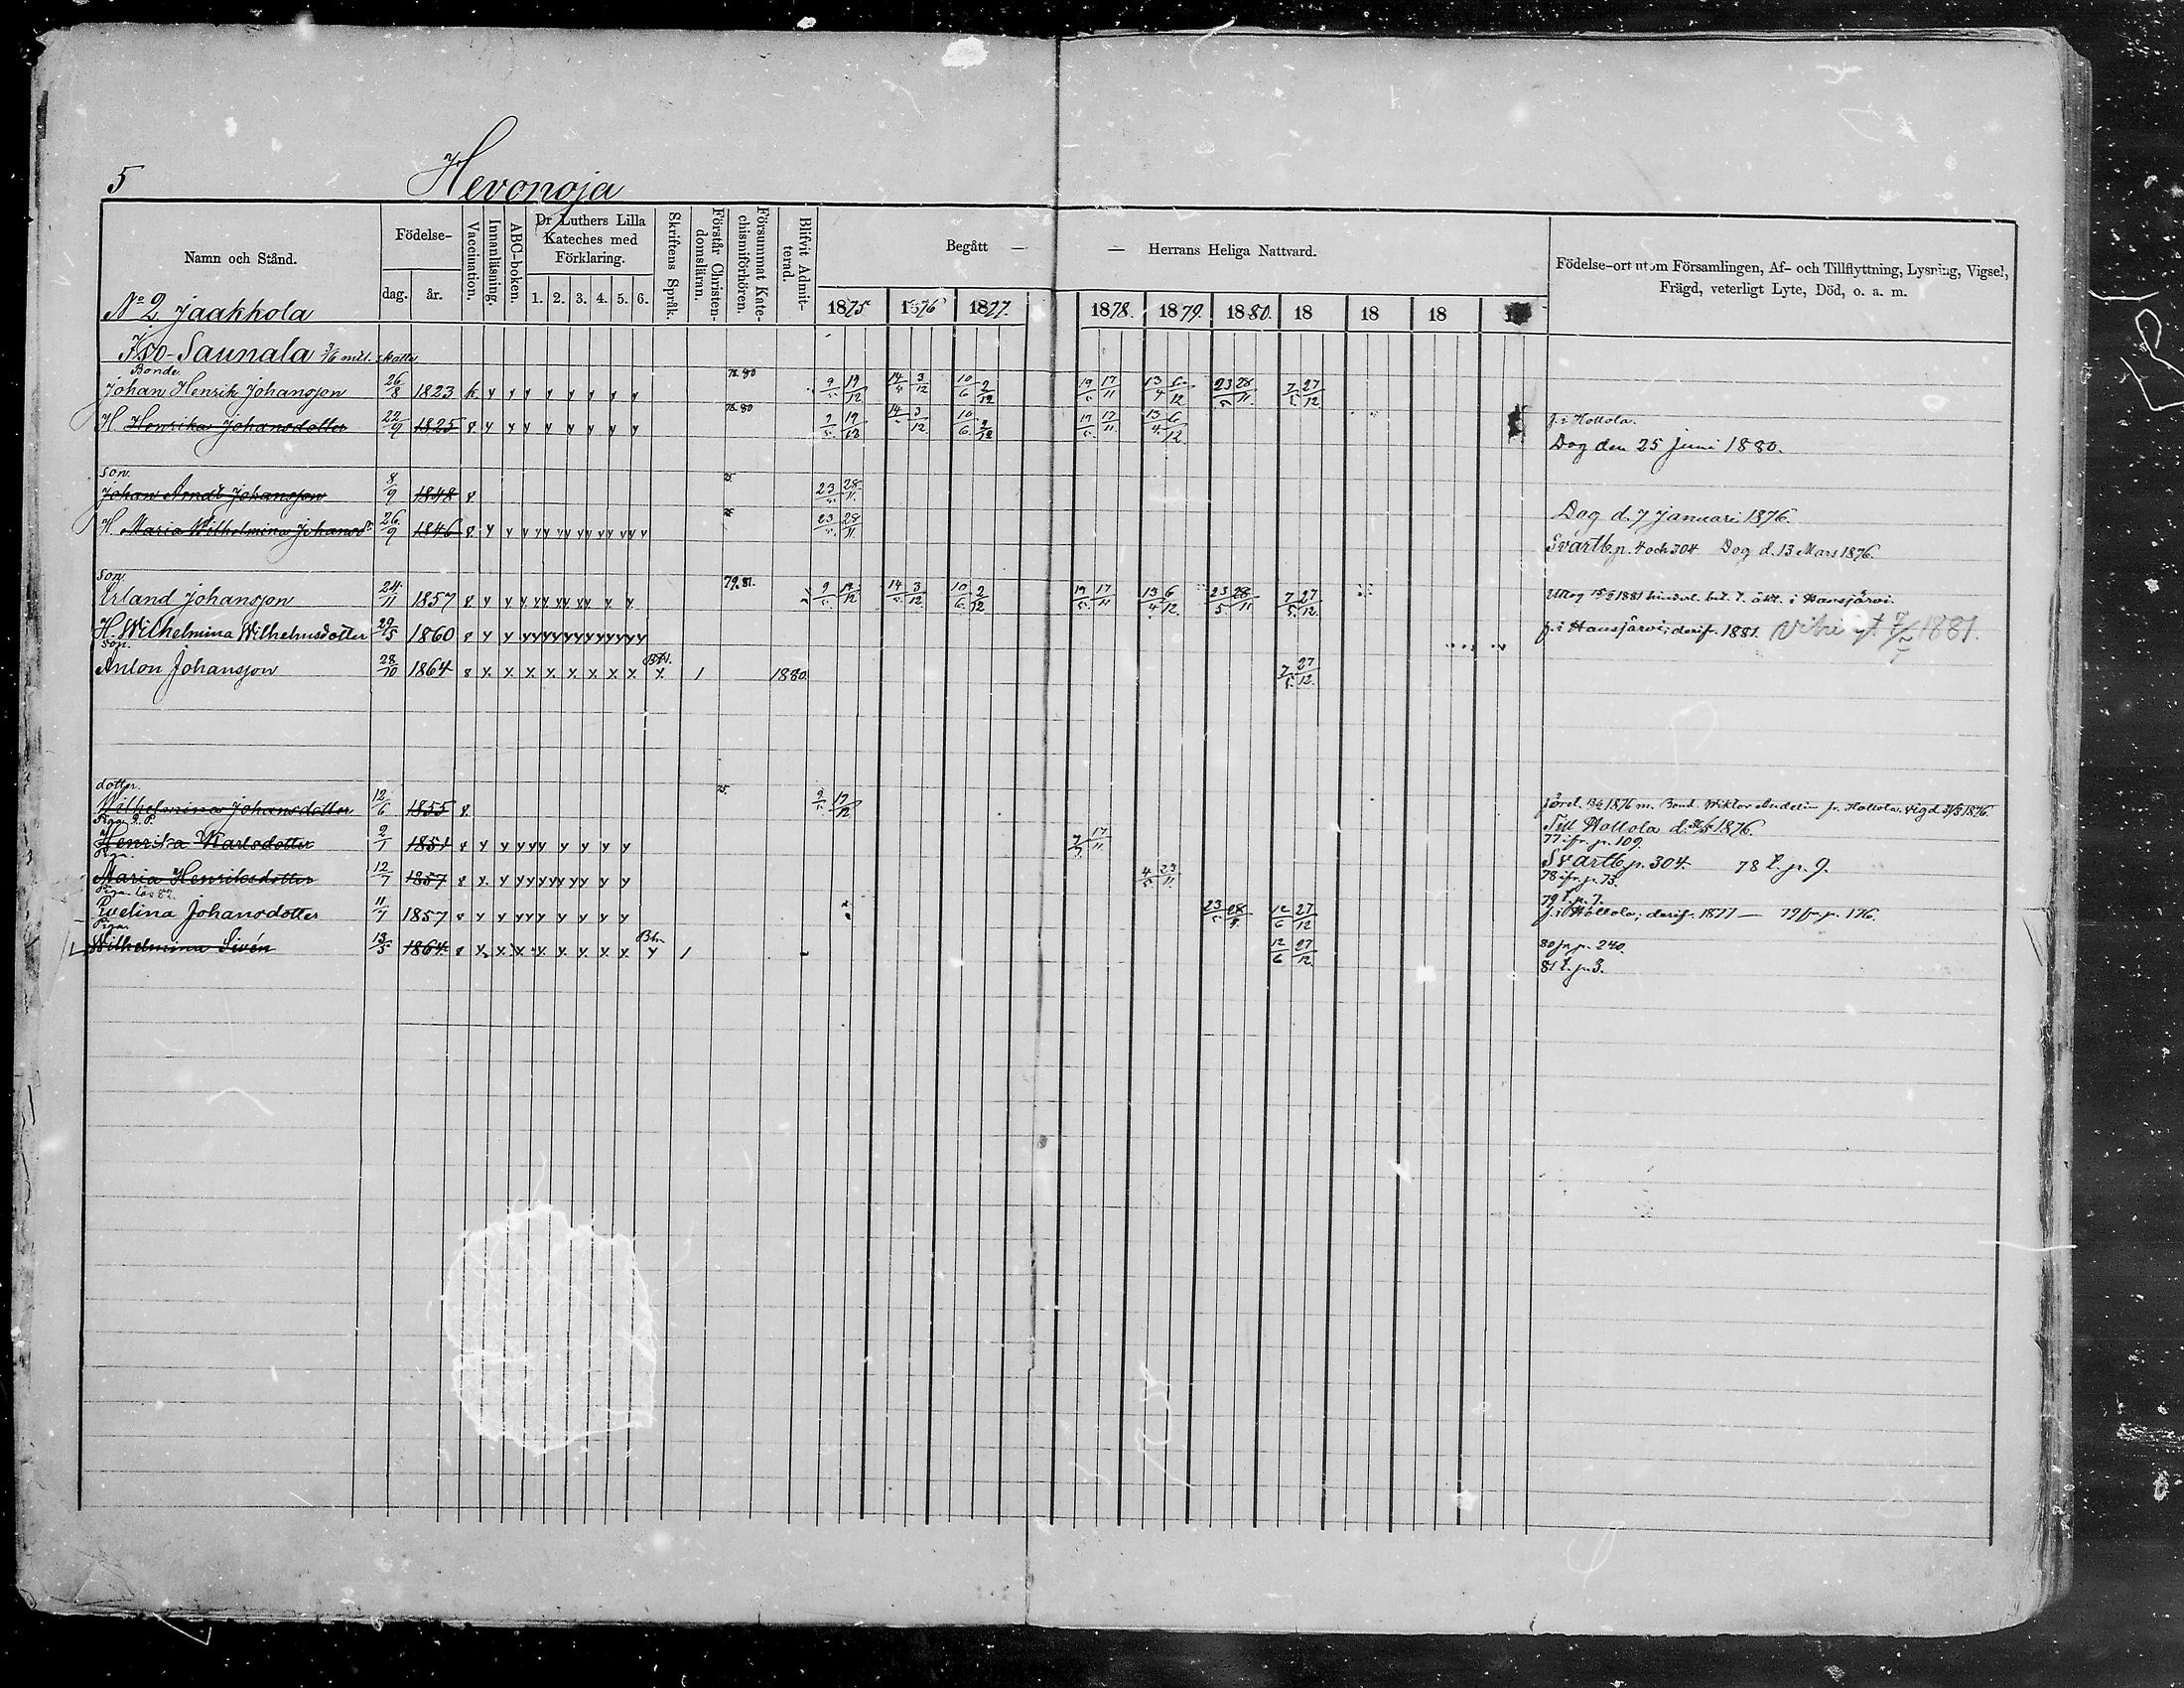 5
Hevonoja
Namn och Stånd.
Födelse-
dag.
år.
Vaccination.
Innanläsning.
ABC-boken.
Dr Luthers Lilla Kateches med Förklaring.
1. 2. 3. 4. 5. 6.
Skriftens Språk.
Förstår Christendomsläran.
Försummat Katechismiförhören.
Blifvit Admitterad.
Begått — — Herrans Heliga Nattvard.
1875 1876 1877. 1878. 1879. 1880. 18 18 18
Födelse-ort utom Församlingen, Af- och Tillflyttning, Lysning, Vigsel,
Frägd, veterligt Lyte, Död, o. a. m.
No 2 Jaakkola
Iso-Saunala
Bonde.
Johan Henrik Johansson 26/8 1823 k. y y y y y y y y 9/5 19/12 14/5 3/12 10/6 2/12 19/5 17/11 13/4 6/12 23/5 28/11. 7/5 27/12
H. Henrika Johansdotter 22/9 1825 y y y y y y y y 9/5 19/12 14/5 3/12. 10/6 2/12 19/5 17/11. 13/4 6/12 f. i Hollola.
Dog den 25 Juni 1880.
Son.
Johan Arndt Johansson 8/9 1848 23/5 28/11.
Dog d. 7 Januari 1876.
H. Maria Wilhelmina Johansdr. 26/9 1846 23/5 28/11.
Svartb. p. 4 och 304 Dog d. 13 Mars 1876.
Son.
Erland Johansson 24/11 1857 79. 81. 9/5 19/12 14/5 3/12 10/6 2/12 19/5 17/11 13/4 6/12 23/5 28/11 7/5 27/12 i Hausjärvi.
H. Wilhelmina Wilhelmsdotter 29/5 1860 f. i Hausjärvi; derifr. 1881. 1881.
Son.
Anton Johansson 28/10 1864 1 1880. 7/5 27/12.
dotter.
Wilhelmina Johansdotter 12/6 1855 75. 9/5 19/12 1876 m. Bond. Wiktor Andelin fr. Hollola. vigd 1876.
Till Hollola d. 1876.
Henrika Karlsdotter 2/1 1851 7/5 17/11. 77 ifr. p. 109.
Svartb. p. 304. 78 t. p. 9.
Piga.
Maria Henriksdotter 12/7 1857 4/5 23/11. 78 ifr. p. 73.
79 t. p. 7.
Piga
Evelina Johansdotter 11/7 1857 23/5 28/11. 12/6 27/12 f. i Hollola; derifr. 1877 — 79 fr. p. 176.
Piga.
Wilhelmina Sivén 13/5 1864 1 12/6 27/12. 80 fr. p. 240.
81 t. p. 3.